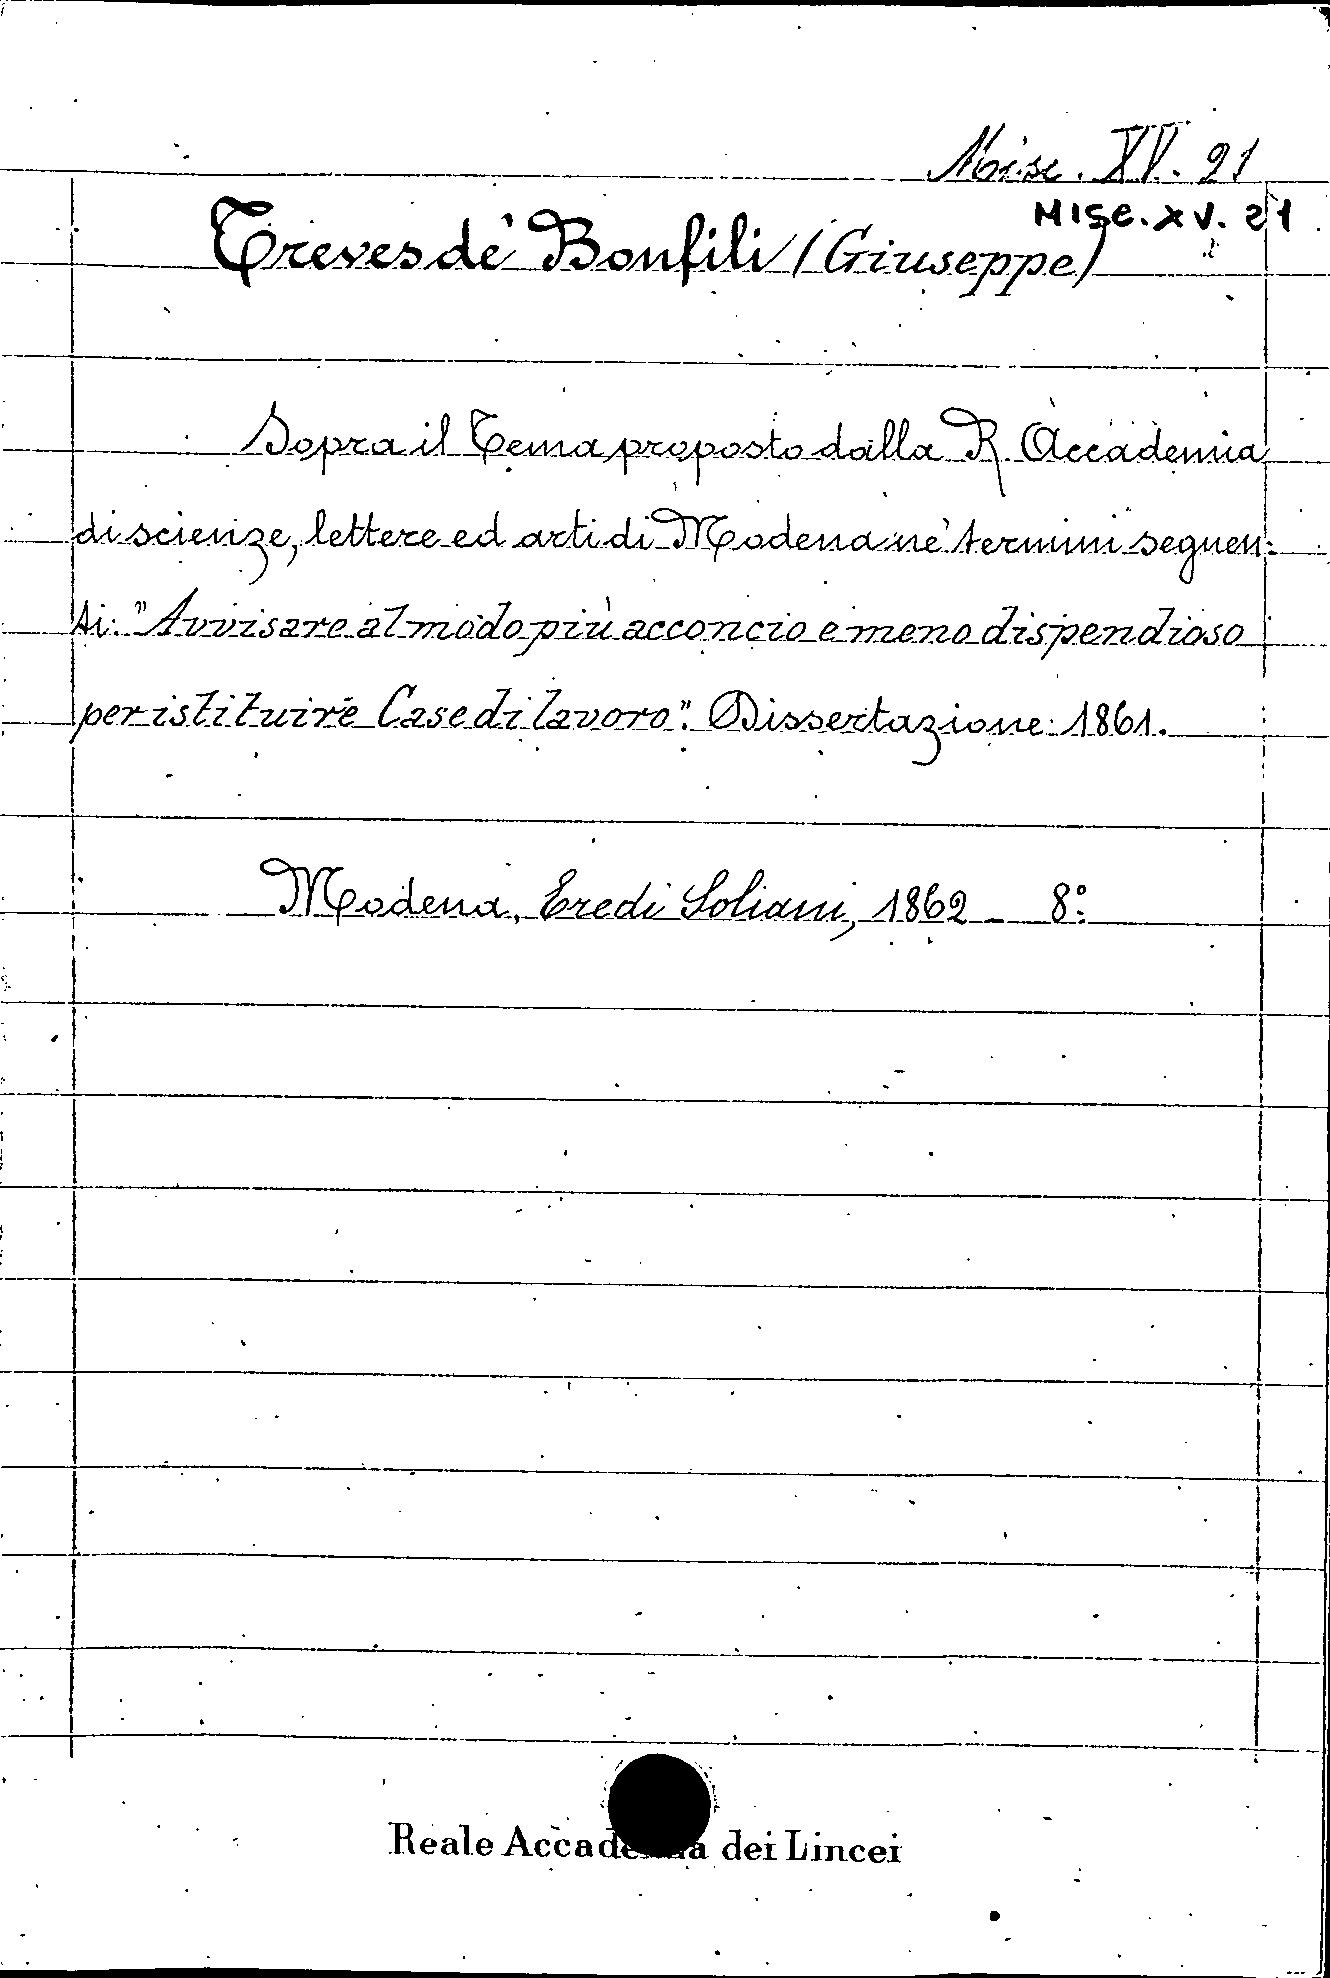 Misc. XV. 21
MISC. XV. 21
Treves de' Bonfili (Giuseppe)
Sopra il Tema proposto dalla R. Accademia
di scienze, lettere ed arti di Modena ne' termini seguen-
ti: "Avvisare al modo più acconcio e meno dispendioso
per istituire Case di lavoro". Dissertazione 1861.
Modena, Eredi Soliani, 1862 - 8°
Reale Accademia dei Lincei